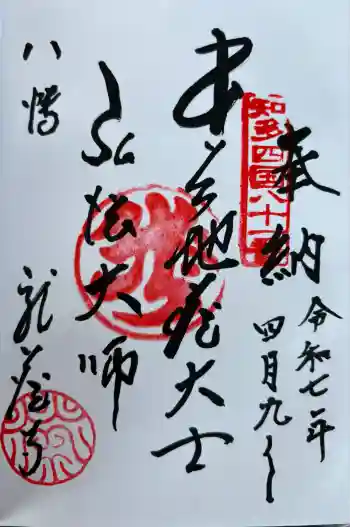 奉納
令和七年
四月九日
知多四国八十一番
本尊地蔵大士
弘法大師
八幡
龍蔵寺